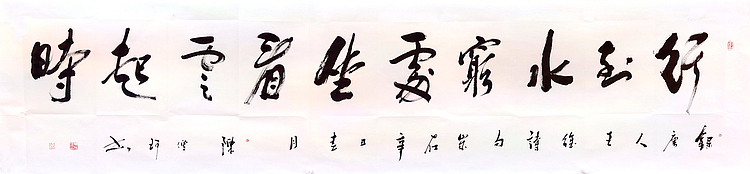 行到水窮處坐看雲起時
錄唐人王維詩句歲在辛丑月陳